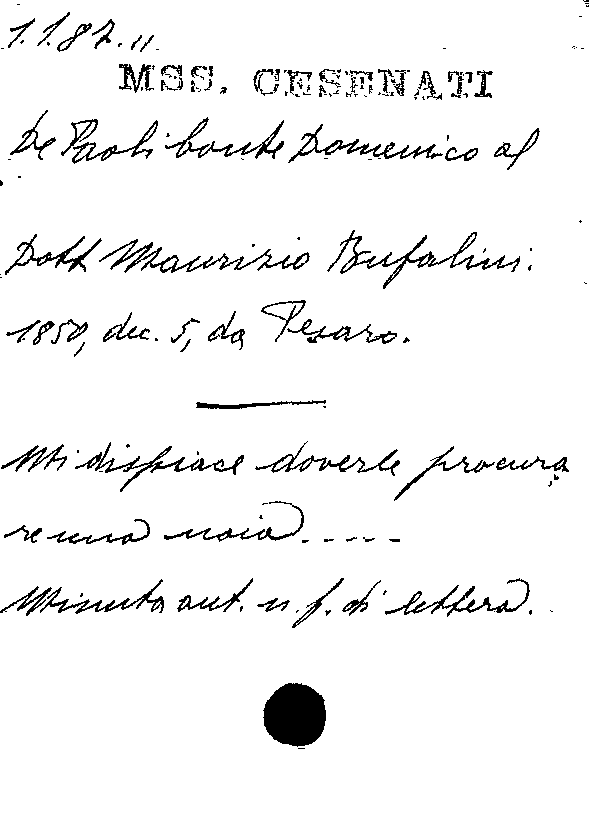 1.1.87.11
MSS. CESENATI
De Paoli conte Domenico al
Dott Maurizio Bufalini.
1850, dec. 5, da Pesaro.
Mi dispiace doverle procura
re una noia.....
Minuta aut. n. f. di lettera.